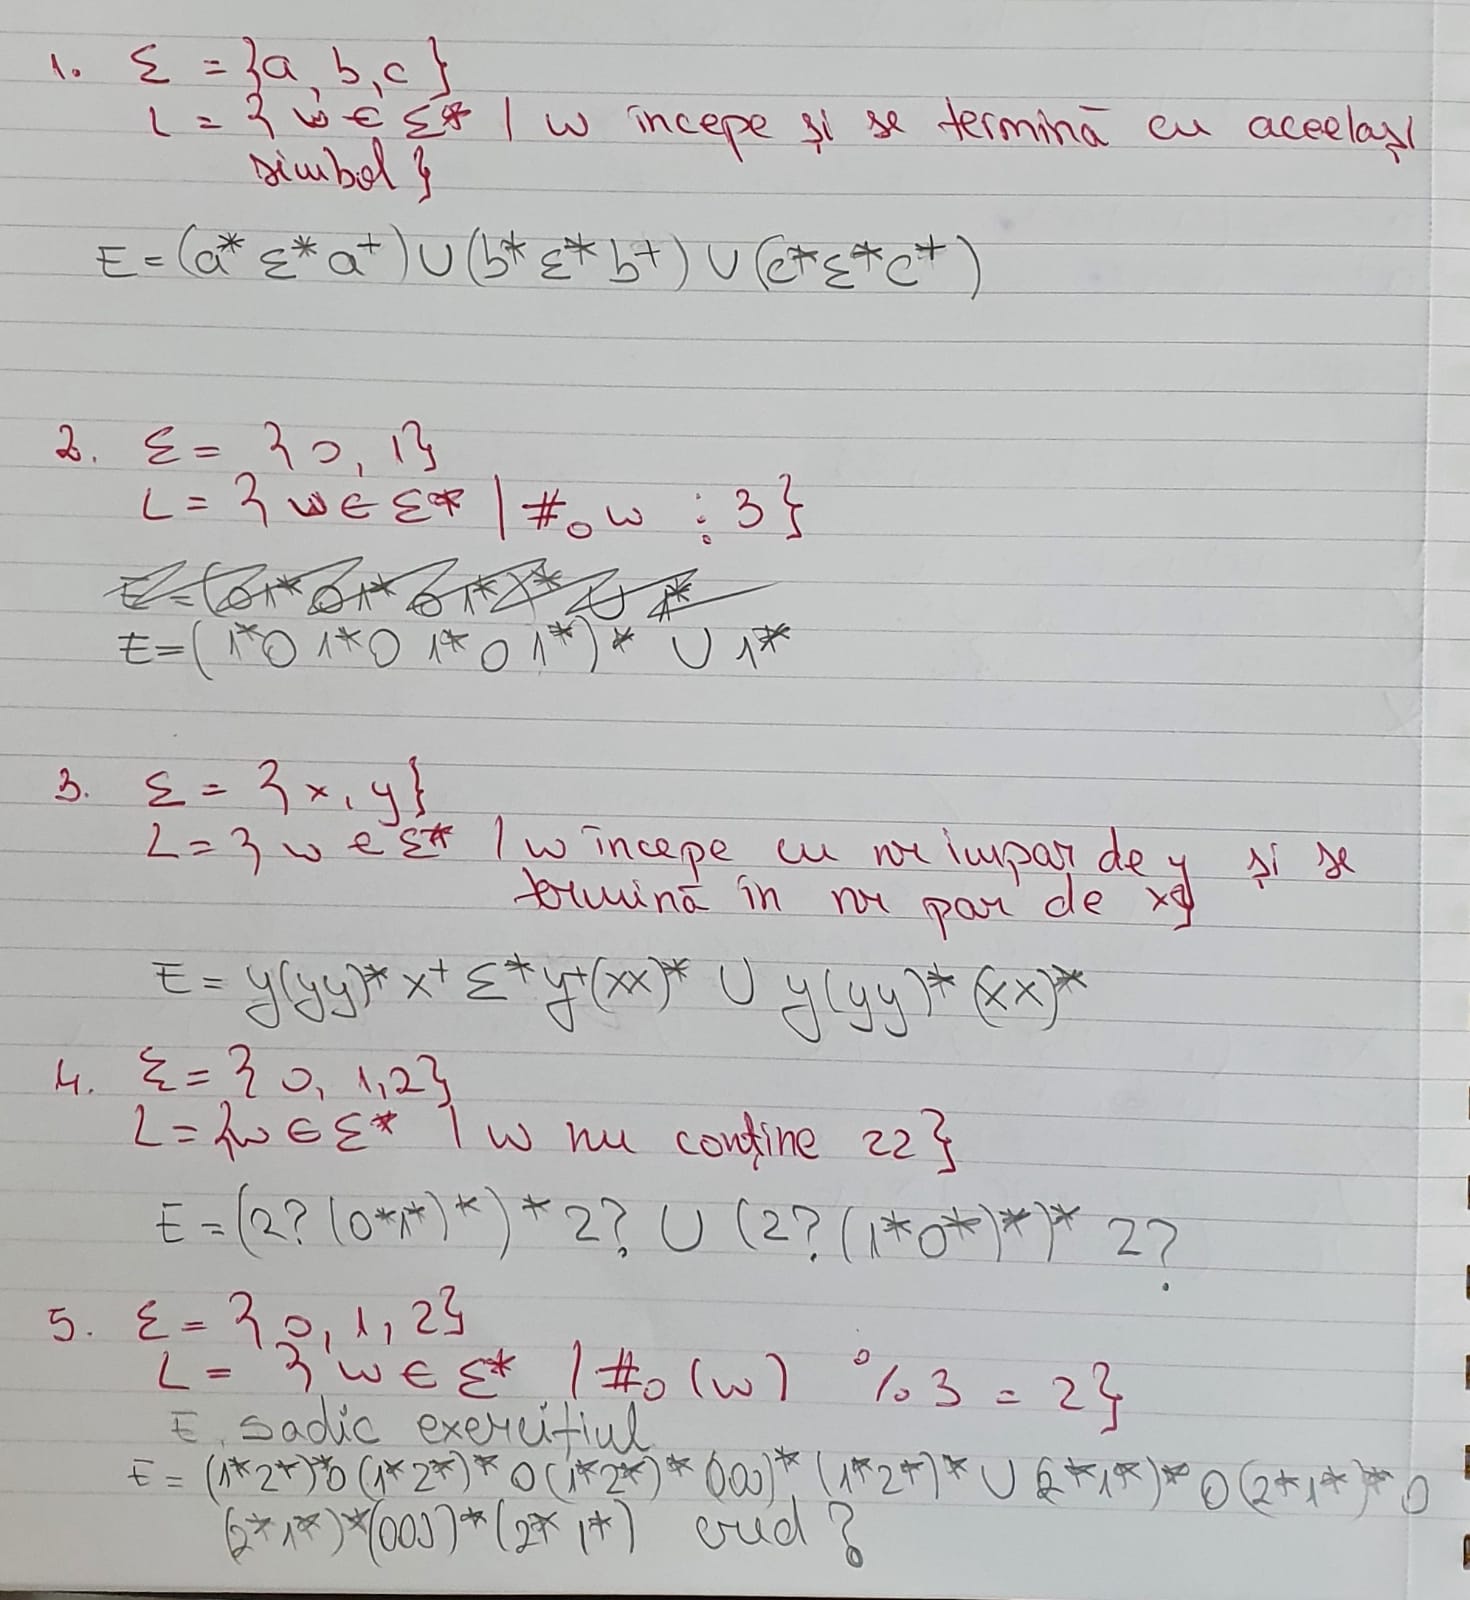 1. Σ = {a, b, c}
L = { w ∈ Σ* | w începe și se termină cu același
simbol }
E = (a* Σ* a+) ∪ (b* Σ* b+) ∪ (c* Σ* c+)
2. Σ = {0, 1}
L = { w ∈ Σ* | #₀ w ⋮ 3 }
E = (01* 01* 01*)* ∪ 1*
E = (1*0 1*0 1*0 1*)* ∪ 1*
3. Σ = {x, y}
L = { w ∈ Σ* | w începe cu nr impar de y și se
termină în nr par de x}
E = y(yy)* x+ Σ* y+(xx)* ∪ y(yy)* (xx)*
4. Σ = {0, 1, 2}
L = {w ∈ Σ* | w nu conține 22}
E = (2? (0*1*)*)* 2? ∪ (2? (1*0*)*)* 2?
5. Σ = {0, 1, 2}
L = { w ∈ Σ* | #₀ (w) % 3 = 2}
E sadic exercițiul
E = (1*2*)*0 (1*2*)* 0 (1*2*)* (000)* (1*2*)* ∪ (2*1*)* 0 (2*1*)* 0
(2*1*)*(000)*(2*1*) cred?